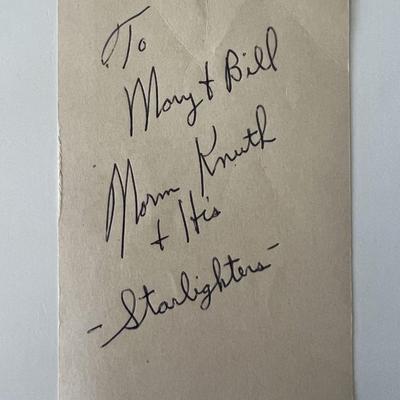 To
Mary + Bill
Norm Knuth
+ His
- Starlighters -